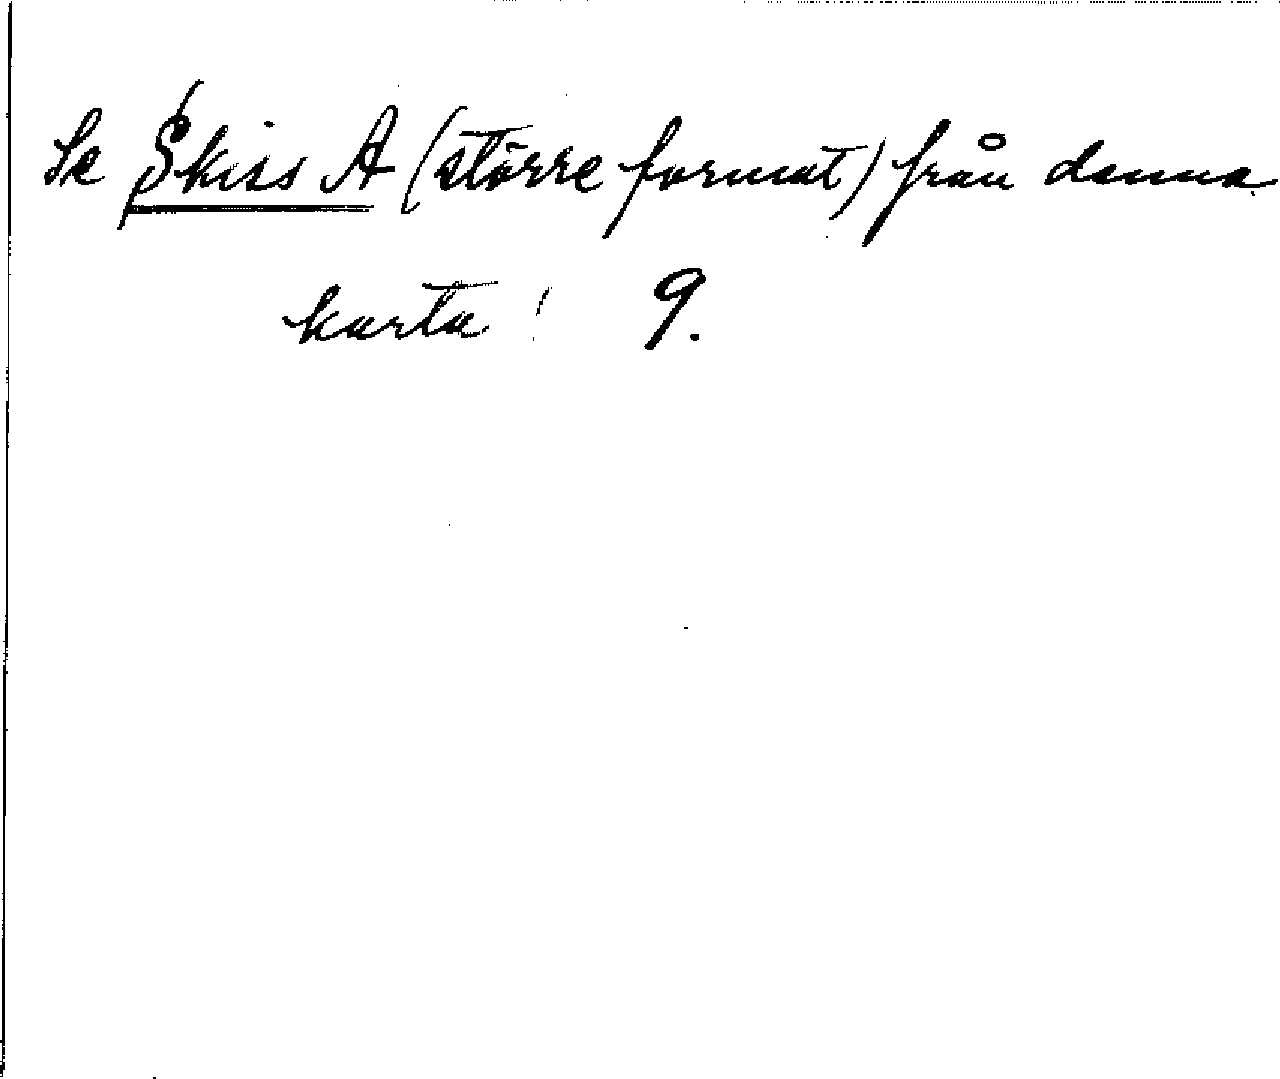 Se Skiss A (större format) från denna
karta! 9.